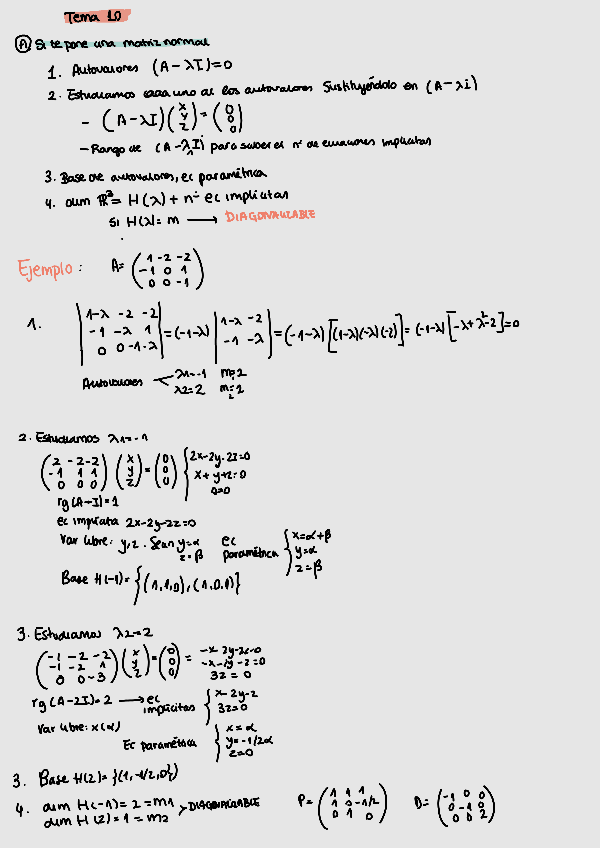 Tema 10
Ⓐ Si te pone una matriz normal
1. Autovalores (A-λI)=0
2. Estudiamos cada uno de los autovalores sustituyéndolo en (A-λi)
- (A-λI) (x y z) = (0 0 0)
- Rango de (A-λI) para saber el nº de ecuaciones implícitas
3. Base de autovalores, ec paramétrica
4. dim ℝ³= H(λ) + nº ec implícitas
Si H(λ)= m → DIAGONALIZABLE
Ejemplo: A= (1 -2 -2
-1 0 1
0 0 -1)
1. |1-λ -2 -2
-1 -λ 1
0 0 -1-λ| =(-1-λ) |1-λ -2
-1 -λ| =(-1-λ)[(1-λ)(-λ)(-2)]= (-1-λ)[-λ+λ²-2]=0
Autovalores λ1=-1 m=2
λ2=2 m2=1
2. Estudiamos λ1=-1
(2 -2 -2
-1 1 1
0 0 0) (x y z) = (0 0 0) { 2x-2y-2z=0
x+y+z=0
0=0
rg(A-I)=1
ec implícita 2x-2y-2z=0
Var libre: y,z. Sean y=α
z=β
ec paramétrica { x=α+β
y=α
z=β
Base H(-1)= {(1,1,0),(1,0,1)}
3. Estudiamos λ2=2
(-1 -2 -2
-1 -2 1
0 0 -3) (x y z) = (0 0 0) = -x-2y-2z=0
-x-2y-z=0
3z=0
rg(A-2I)=2 → ec implícitas { x-2y-2
3z=0
Var libre: x(α)
Ec paramétrica { x=α
y=-1/2α
z=0
3. Base H(2)= {(1,-1/2,0)}
4. dim H(-1)=2=m1
dim H(2)=1=m2 > DIAGONALIZABLE
P= (1 1 1
1 0 -1/2
0 1 0)
D= (-1 0 0
0 -1 0
0 0 2)